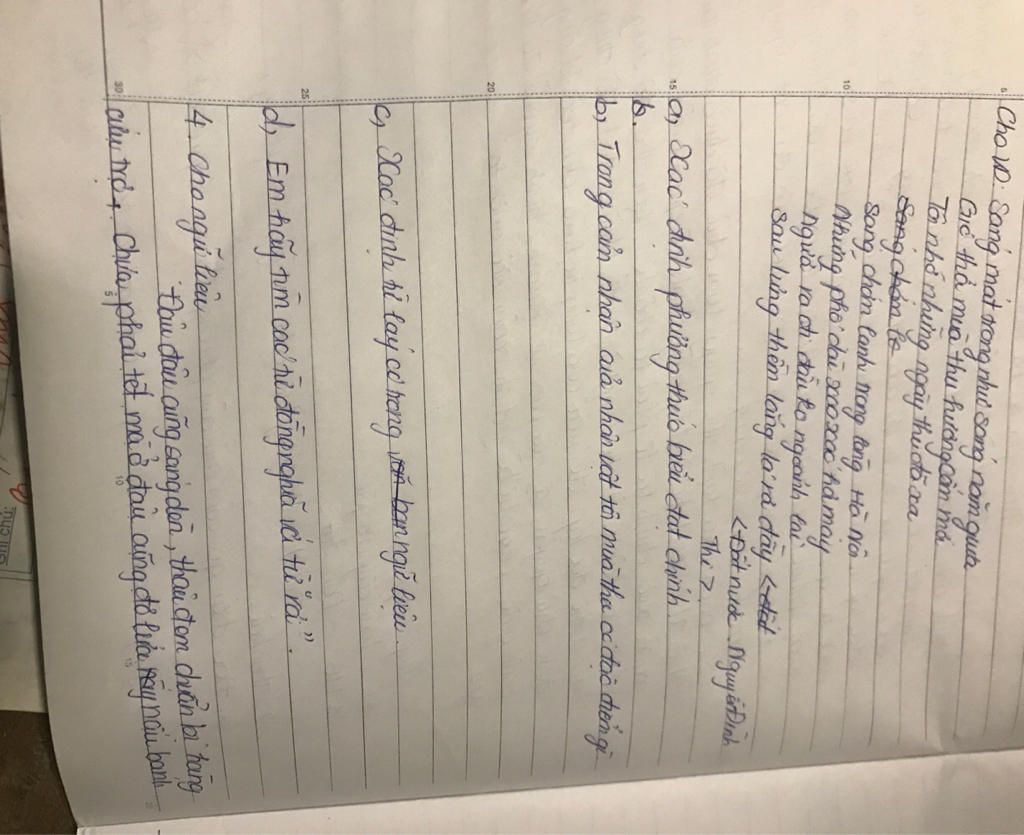 Cho VD: Sáng mát trong như sáng năm xưa
Gió thổi mùa thu hương cốm mới
Tôi nhớ những ngày thu đã xa
Sáng chớm lạ
Sáng chớm lạnh trong lòng Hà Nội
Những phố dài xao xác hơi may
Người ra đi đầu ko ngoảnh lại
Sau lưng thềm nắng lá rơi đầy <đất
<Đất nước. Nguyễn Đình
Thi>
a, Xác định phương thức biểu đạt chính.
b.
b, Trong cảm nhận của nhân vật tôi mùa thu có đặc điểm gì
c, Xác định từ láy có trong văn bản ngữ liệu.
d, Em hãy tìm các từ đồng nghĩa với từ "rơi".
4. Cho ngữ liệu
Đâu đâu cũng sáng đèn, thâu đêm chuẩn bị hàng
cứu trợ. Chưa phải tết mà ở đâu cũng đỏ lửa nấu bánh
5
10
15
20
25
30
5
10
15
20